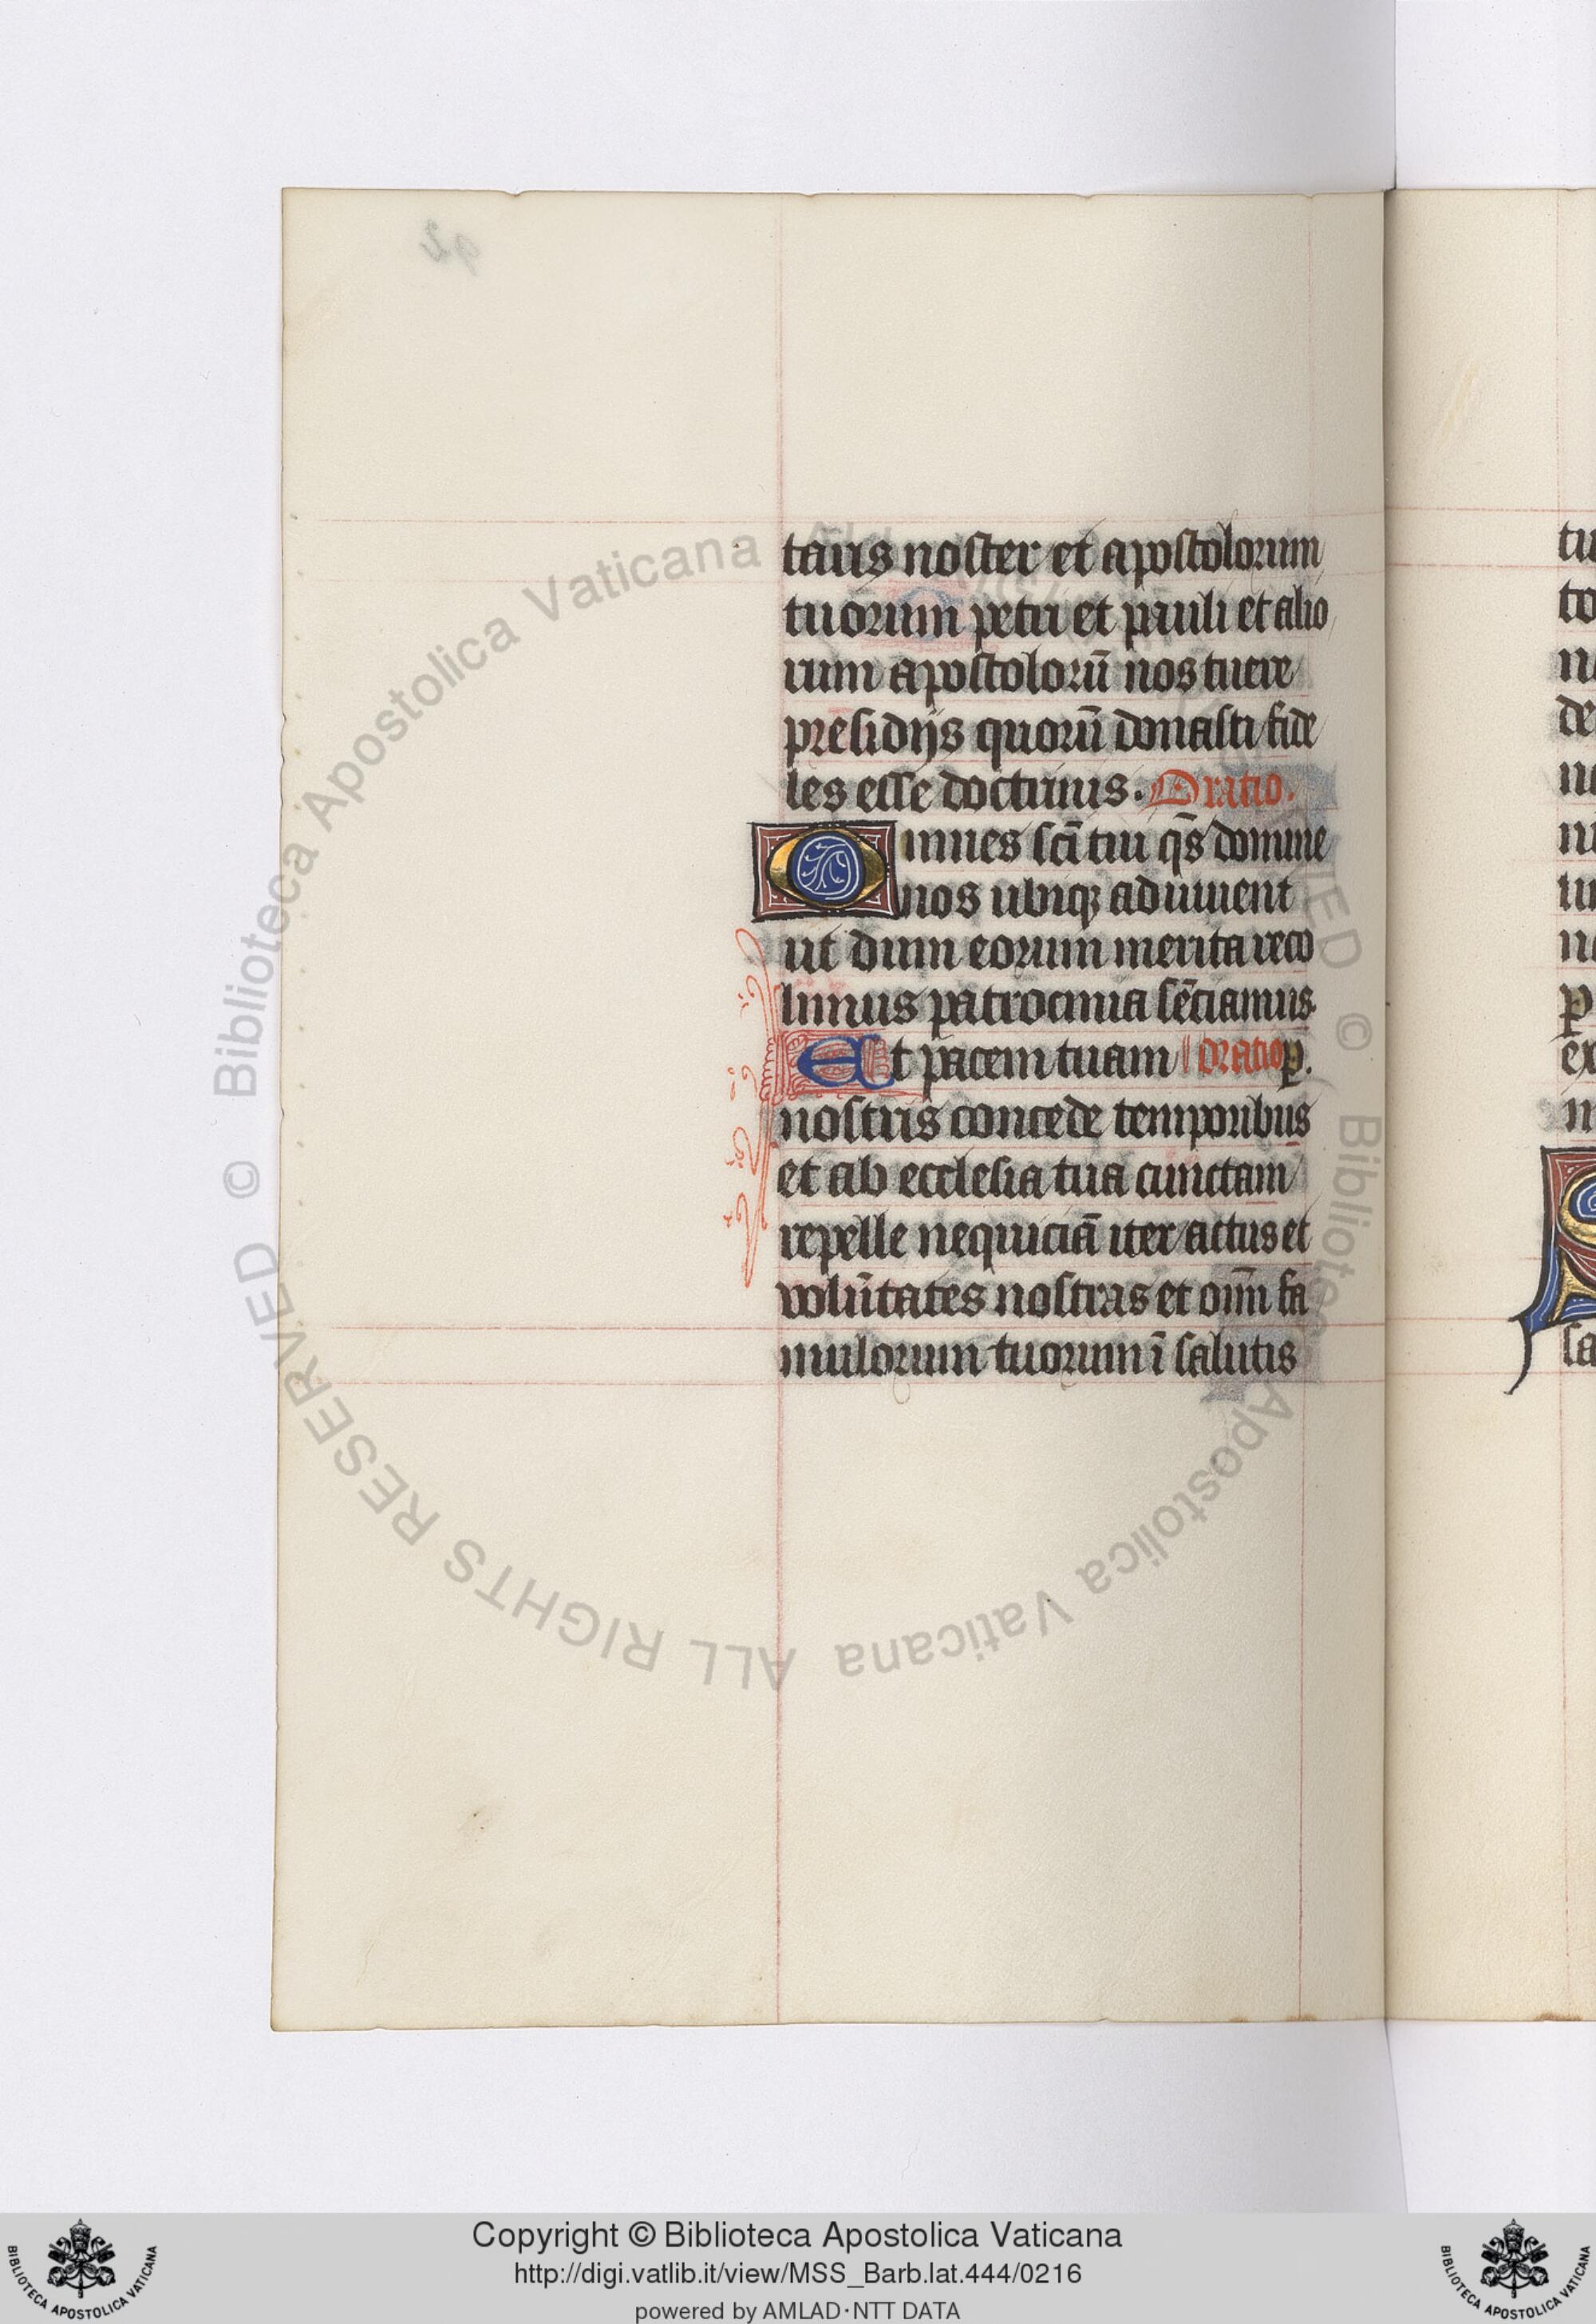 taris noster et apostolorum
tuorum petri et pauli et alio
rum apostolorū nos tuere
presidijs quorū donasti fide
les esse doctrinis. Oratio.
Omnes sc̄i tui q̄s domine
nos ubiqꝫ adiuuent
ut dum eorum merita reco
limus patrocinia sēciamus.
Et pacem tuam oratio p̱.
nostris concede temporibus
et ab ecclesia tua cunctam
repelle nequiciā iter actus et
volūtates nostras et om̄ fa
mulorum tuorum ī salutis
© Biblioteca Apostolica Vaticana
ALL RIGHTS RESERVED
© Biblioteca Apostolica Vaticana
Copyright © Biblioteca Apostolica Vaticana
http://digi.vatlib.it/view/MSS_Barb.lat.444/0216
powered by AMLAD·NTT DATA
BIBLIOTECA APOSTOLICA VATICANA
BIBLIOTECA APOSTOLICA VATICANA